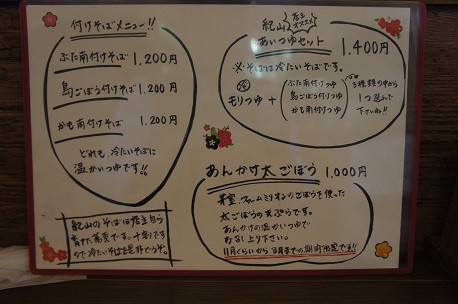 付けそばメニュー!!
ぶた南付けそば 1,200円
島ごぼう付けそば 1,200円
かも南付けそば 1,200円
どれも、冷たいそばに
温かいつゆです!!
紀山のそばは店主自ら
育てた蕎麦です。十割です
ので、冷たいそばは是非どうぞ。
紀山 店主オススメ
あいつゆセット 1,400円
※そばは冷たいそばです。
冷
モリつゆ +
ぶた南付けつゆ
島ごぼう付けつゆ
かも南付けつゆ
3種類の中から
1つ選んで
下さいね!!
あんかけ太ごぼう 1,000円
ごぼうを使った
太ごぼうの天ぷらです。
あんかけの温かいつゆで
お召し上り下さい。
11月ぐらいから3月までの期間限定です!!